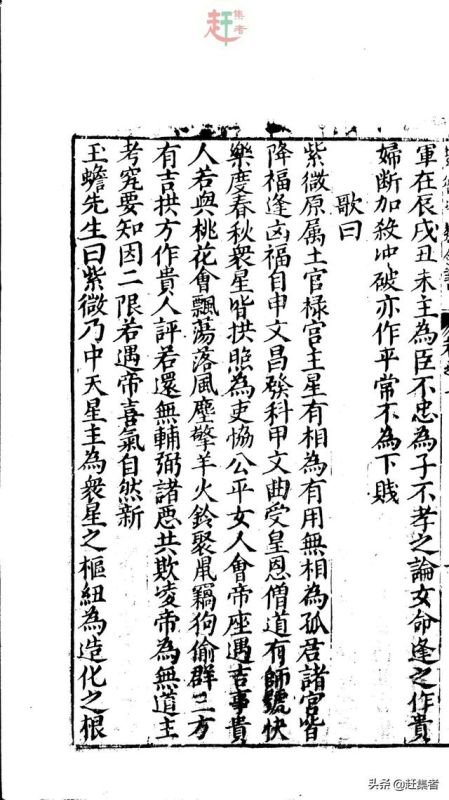 赶集者
軍在辰戌丑未主為臣不忠為子不孝之論女命逢之作貴
婦斷加殺冲破亦作平常不為下賤
歌曰
紫微原属土官祿宮主星有相為有用無相為孤君諸宮皆
降福逢凶福自申文昌發科甲文曲受皇恩僧道有師號快
樂度春秋衆星皆拱照為吏協公平女人會帝座遇吉事貴
人若與桃花會飄蕩落風塵擎羊火鈴聚鼡竊狗偷群三方
有吉拱方作貴人評若還無輔弼諸悪共欺凌帝為無道主
考究要知因二限若遇帝喜氣自然新
玉蟾先生曰紫微乃中天星主為衆星之樞紐為造化之根
头条 @赶集者